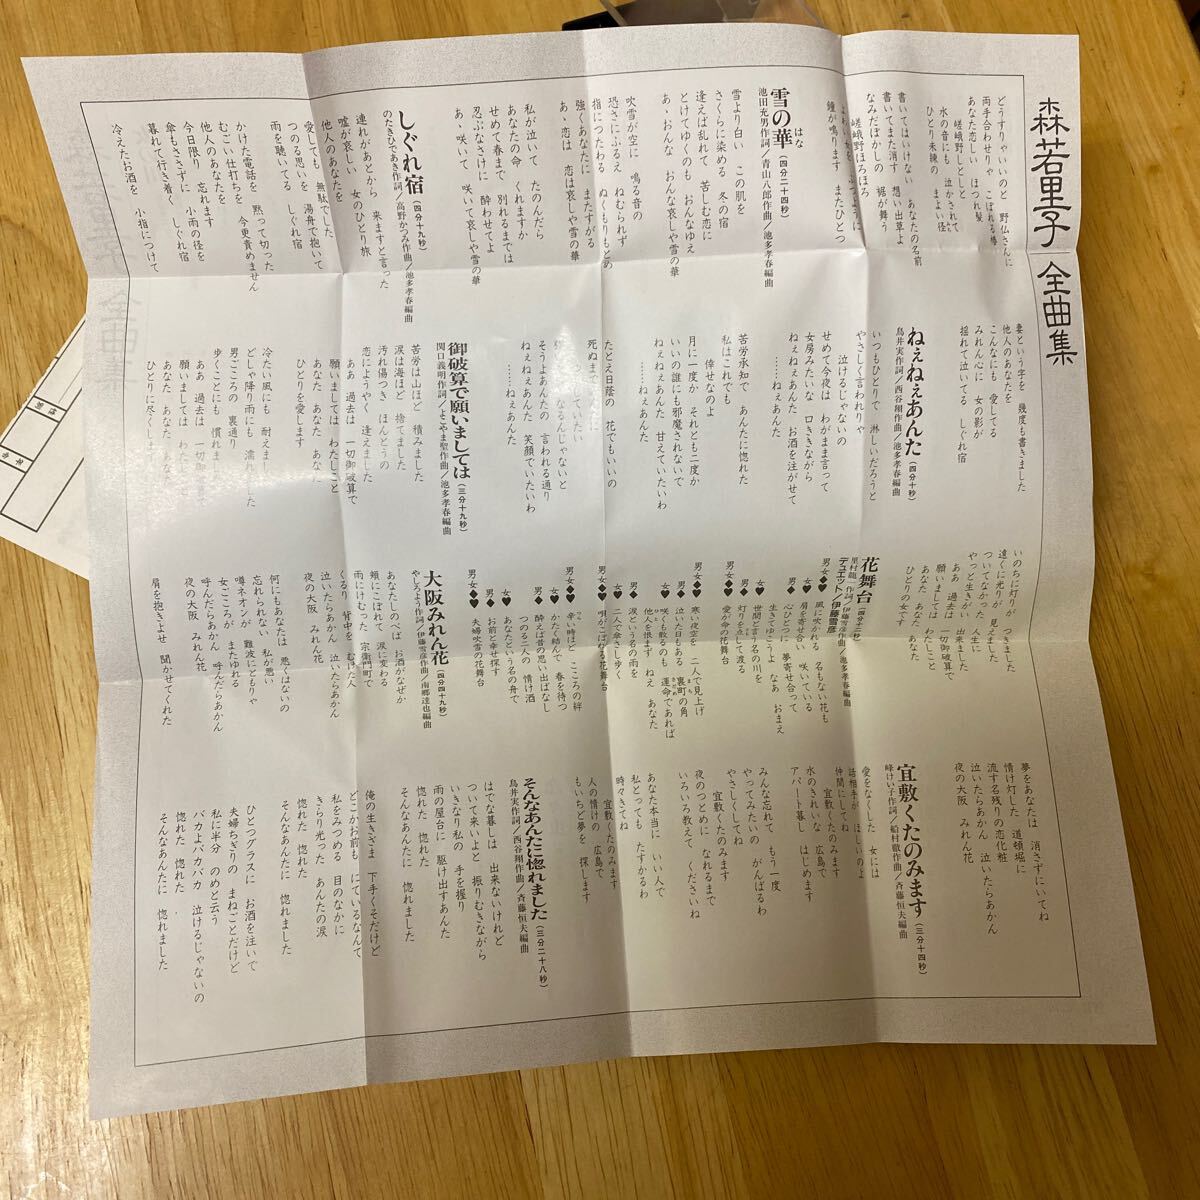 森若里子 全曲集
どうすりゃいいのと 野仏さんに
両手合わせりゃ こぼれる椿
あなた恋しい ほつれ髪
嵯峨野しとしと
水の音にも 泣かされて
ひとり未練の まよい径
書いてはいけない あなたの名前
書いてまた消す 想い出草よ
なみだぼかしの 裾が舞う
嵯峨野ほろほろ
鐘が鳴ります またひとつ
雪の華
はな
(四分二十四秒)
池田充男作詞/青山八郎作曲/池多孝春編曲
雪より白い この肌を
さくらに染める 冬の宿
逢えば乱れて 苦しむ恋に
とけてゆくのも おんなゆえ
あゝおんな おんな哀しや雪の華
吹雪が空に 鳴る音の
恐さにふるえ ねむられず
指につたわる ぬくもりもとめ
強くあなたに またすがる
あゝ恋は 恋は哀しや雪の華
私が泣いて たのんだら
あなたの命 くれますか
せめて春まで 別れるまでは
忍ぶなさけに 酔わせてよ
あゝ咲いて 咲いて哀しや雪の華
しぐれ宿
(四分十九秒)
のたきひであき作詞/高野かつみ作曲/池多孝春編曲
連れがあとから 来ますと言った
嘘が哀しい 女のひとり旅
他人のあなたを
愛しても 無駄でした
つのる思いを 湯舟で抱いて
雨を聴いてる しぐれ宿
かけた電話を 黙って切った
むごい仕打ちを 今更責めません
他人のあなたを
今日限り 忘れます
傘もささずに 小雨の径を
暮れて行き着く しぐれ宿
冷えたお酒を 小指につけて
妻という字を 幾度も書きました
他人のあなたを
こんなにも 愛してる
みれん心に 女の影が
揺れて泣いてる しぐれ宿
ねぇねぇあんた
(四分十秒)
鳥井実作詞/西谷翔作曲/池多孝春編曲
いつもひとりで 淋しいだろうと
やさしく言われりゃ
泣けるじゃないの
せめて今夜は わがまま言って
女房みたいな 口ききながら
ねぇねぇあんた お酒を注がせて
……ねぇあんた
苦労承知で あんたに惚れた
私はこれでも
倖せなのよ
月に一度か それとも二度か
いいの誰にも邪魔されないで
ねぇねぇあんた 甘えていたいわ
……ねぇあんた
たとえ日蔭の 花でもいいの
そうよあんたの 言われる通り
ねぇねぇあんた 笑顔でいたいわ
……ねぇあんた
御破算で願いましては
(三分十九秒)
関口義明作詞/よこやま聖作曲/池多孝春編曲
苦労は山ほど 積みました
涙は海ほど 捨てました
汚れ傷つき ほんとうの
恋にようやく 逢えました
ああ 過去は 一切御破算で
願いましては わたしこと
あなた あなた あなた
ひとりを愛します
冷たい風にも 耐えました
どしゃ降り雨にも 濡れました
男ごころの 裏通り
歩くことにも 慣れま
ああ 過去は 一切御破
願いましては わたし
あなた あなた あな
ひとりに尽くし
いのちに灯りが つきました
遠くに光りが 見えました
ついてなかった 人生に
やっと生きがい 出来ました
ああ 過去は 一切御破算で
願いましては わたしこと
あなた あなた あなた
ひとりの女です
花舞台
(四分三十二秒)
里村龍一作詞/伊藤雪彦作曲/池多孝春編曲
デュエット/伊藤雪彦
男女◆♥ 風に吹かれる 名もない花も
肩を寄せ合い 咲いている
男◆ 心ひとつに 夢寄せ合って
生きてゆこうよ なあ おまえ
女♥ 世間と言う名の川を
男◆ 灯りを点して渡る
男女◆♥ 愛が命の花舞台
男女◆♥ 寒い夜空を 二人で見上げ
男◆ 泣いた日もある 裏町の角
女♥ 咲くも散るのも 運命であれば
他人を恨まず ねえ あなた
男◆ 涙という名の雨を
女♥ 二人で傘さし歩く
男女◆♥ 唄がこぼれる花舞台
男女◆♥ 辛い時ほど こころの絆
女♥ かたく結んで 春を待つ
男◆ 酔えば昔の思い出ばなし
つのる二人の 情け酒
女♥ あなたという名の舟で
男◆ お前と幸せ探す
男女◆♥ 夫婦吹雪の花舞台
大阪みれん花
(四分四十九秒)
やしろよう作詞/伊藤雪彦作曲/南郷達也編曲
あなたしのべば お酒がなぜか
頬にこぼれて 涙に変わる
雨にけむった 宗衛門町で
くるり 背中を むけた人
泣いたらあかん 泣いたらあかん
夜の大阪 みれん花
何にもあなたは 悪くはないの
忘れられない 私が悪い
噂ネオンが 難波にともりゃ
女ごころが またゆれる
呼んだらあかん 呼んだらあかん
夜の大阪 みれん花
肩を抱きよせ 聞かせてくれた
夢をあなたは 消さずにいてね
情け灯した 道頓堀に
流す名残りの恋化粧
泣いたらあかん 泣いたらあかん
夜の大阪 みれん花
宜敷くたのみます
(三分十四秒)
峰けい子作詞/船村徹作曲/斉藤恒夫編曲
愛をなくした 女には
話相手が ほしいのよ
仲間にしてね
宜敷くたのみます
水のきれいな 広島で
アパート暮し はじめます
みんな忘れて もう一度
やってみたいの がんばるわ
やさしくしてね
宜敷くたのみます
夜のつとめに なれるまで
いろいろ教えて くださいね
あなた本当に いい人で
私とっても たすかるわ
時々きてね
宜敷くたのみます
人の情けの 広島で
もいちど夢を 探します
そんなあんたに惚れました
(三分二十八秒)
鳥井実作詞/西谷翔作曲/斉藤恒夫編曲
はでな暮しは 出来ないけれど
ついて来いよと 振りむきながら
いきなり私の 手を握り
雨の屋台に 駆け出すあんた
惚れた 惚れた
そんなあんたに 惚れました
俺の生きざま 下手くそだけど
どこかお前も にているなんて
私をみつめる 目のなかに
きらり光った あんたの涙
惚れた 惚れた
そんなあんたに 惚れました
ひとつグラスに お酒を注いで
夫婦ちぎりの まねごとだけど
私に半分 のめと云う
バカよバカバカ 泣けるじゃないの
惚れた 惚れた
そんなあんたに 惚れました